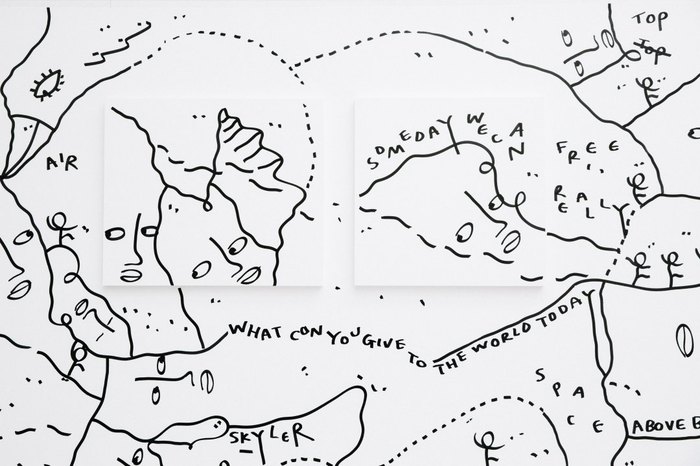 TOP
TOP
SOMEDAY WE CAN
FREE
REALLY
AIR
WHAT CON YOU GIVE TO THE WORLD TODAY
SPACE
ABOVE
SKYLER